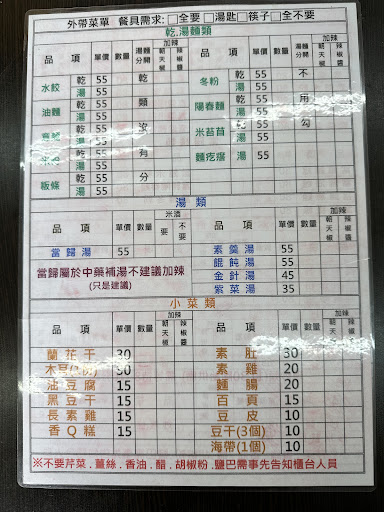 外帶菜單 餐具需求:□全要 □湯匙□筷子□全不要
乾.湯麵類
品項 單價 數量 湯麵分開 加辣 朝天椒 辣椒醬 品項 單價 數量 湯麵分開 加辣 朝天椒 辣椒醬
水餃 乾 55 乾類沒有分 冬粉 乾 55 不用勾
湯 55 湯 55
油麵 乾 55 陽春麵 乾 55
湯 55 湯 55
乾 55 米苔目 乾 55
湯 55 湯 55
乾 55 麵疙瘩 湯 55
湯 55
粄條 乾 55
湯 55
湯類
品項 單價 數量 米酒 要 不要 品項 單價 數量 加辣 朝天椒 辣椒醬
當歸湯 55 素羹湯 55
當歸屬於中藥補湯不建議加辣 餛飩湯 55
(只是建議) 金針湯 45
紫菜湯 35
小菜類
品項 單價 數量 加辣 朝天椒 辣椒醬 品項 單價 數量 加辣 朝天椒 辣椒醬
蘭花干 30 素肚 30
素雞 20
油豆腐 15 麵腸 20
黑豆干 15 百頁 15
長素雞 15 豆皮 10
香Q糕 15 豆干(3個) 10
海帶(1個) 10
※不要芹菜.薑絲.香油.醋.胡椒粉.鹽巴需事先告知櫃台人員